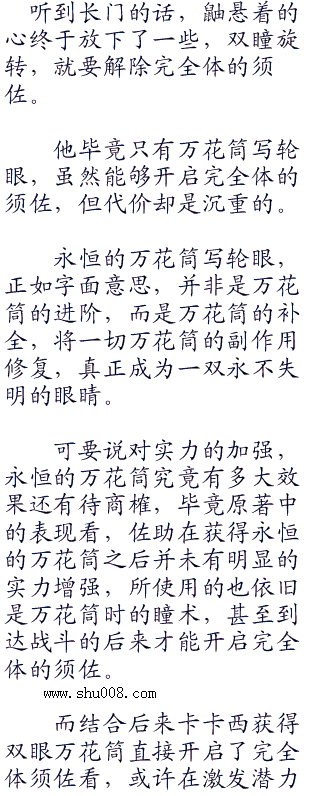 听到长门的话，鼬悬着的
心终于放下了一些，双瞳旋
转，就要解除完全体的须
佐。
他毕竟只有万花筒写轮
眼，虽然能够开启完全体的
须佐，但代价却是沉重的。
永恒的万花筒写轮眼，
正如字面意思，并非是万花
筒的进阶，而是万花筒的补
全，将一切万花筒的副作用
修复，真正成为一双永不失
明的眼睛。
可要说对实力的加强，
永恒的万花筒究竟有多大效
果还有待商榷，毕竟原著中
的表现看，佐助在获得永恒
的万花筒之后并未有明显的
实力增强，所使用的也依旧
是万花筒时的瞳术，甚至到
达战斗的后来才能开启完全
体的须佐。
www.shu008.com
而结合后来卡卡西获得
双眼万花筒直接开启了完全
体须佐看，或许在激发潜力